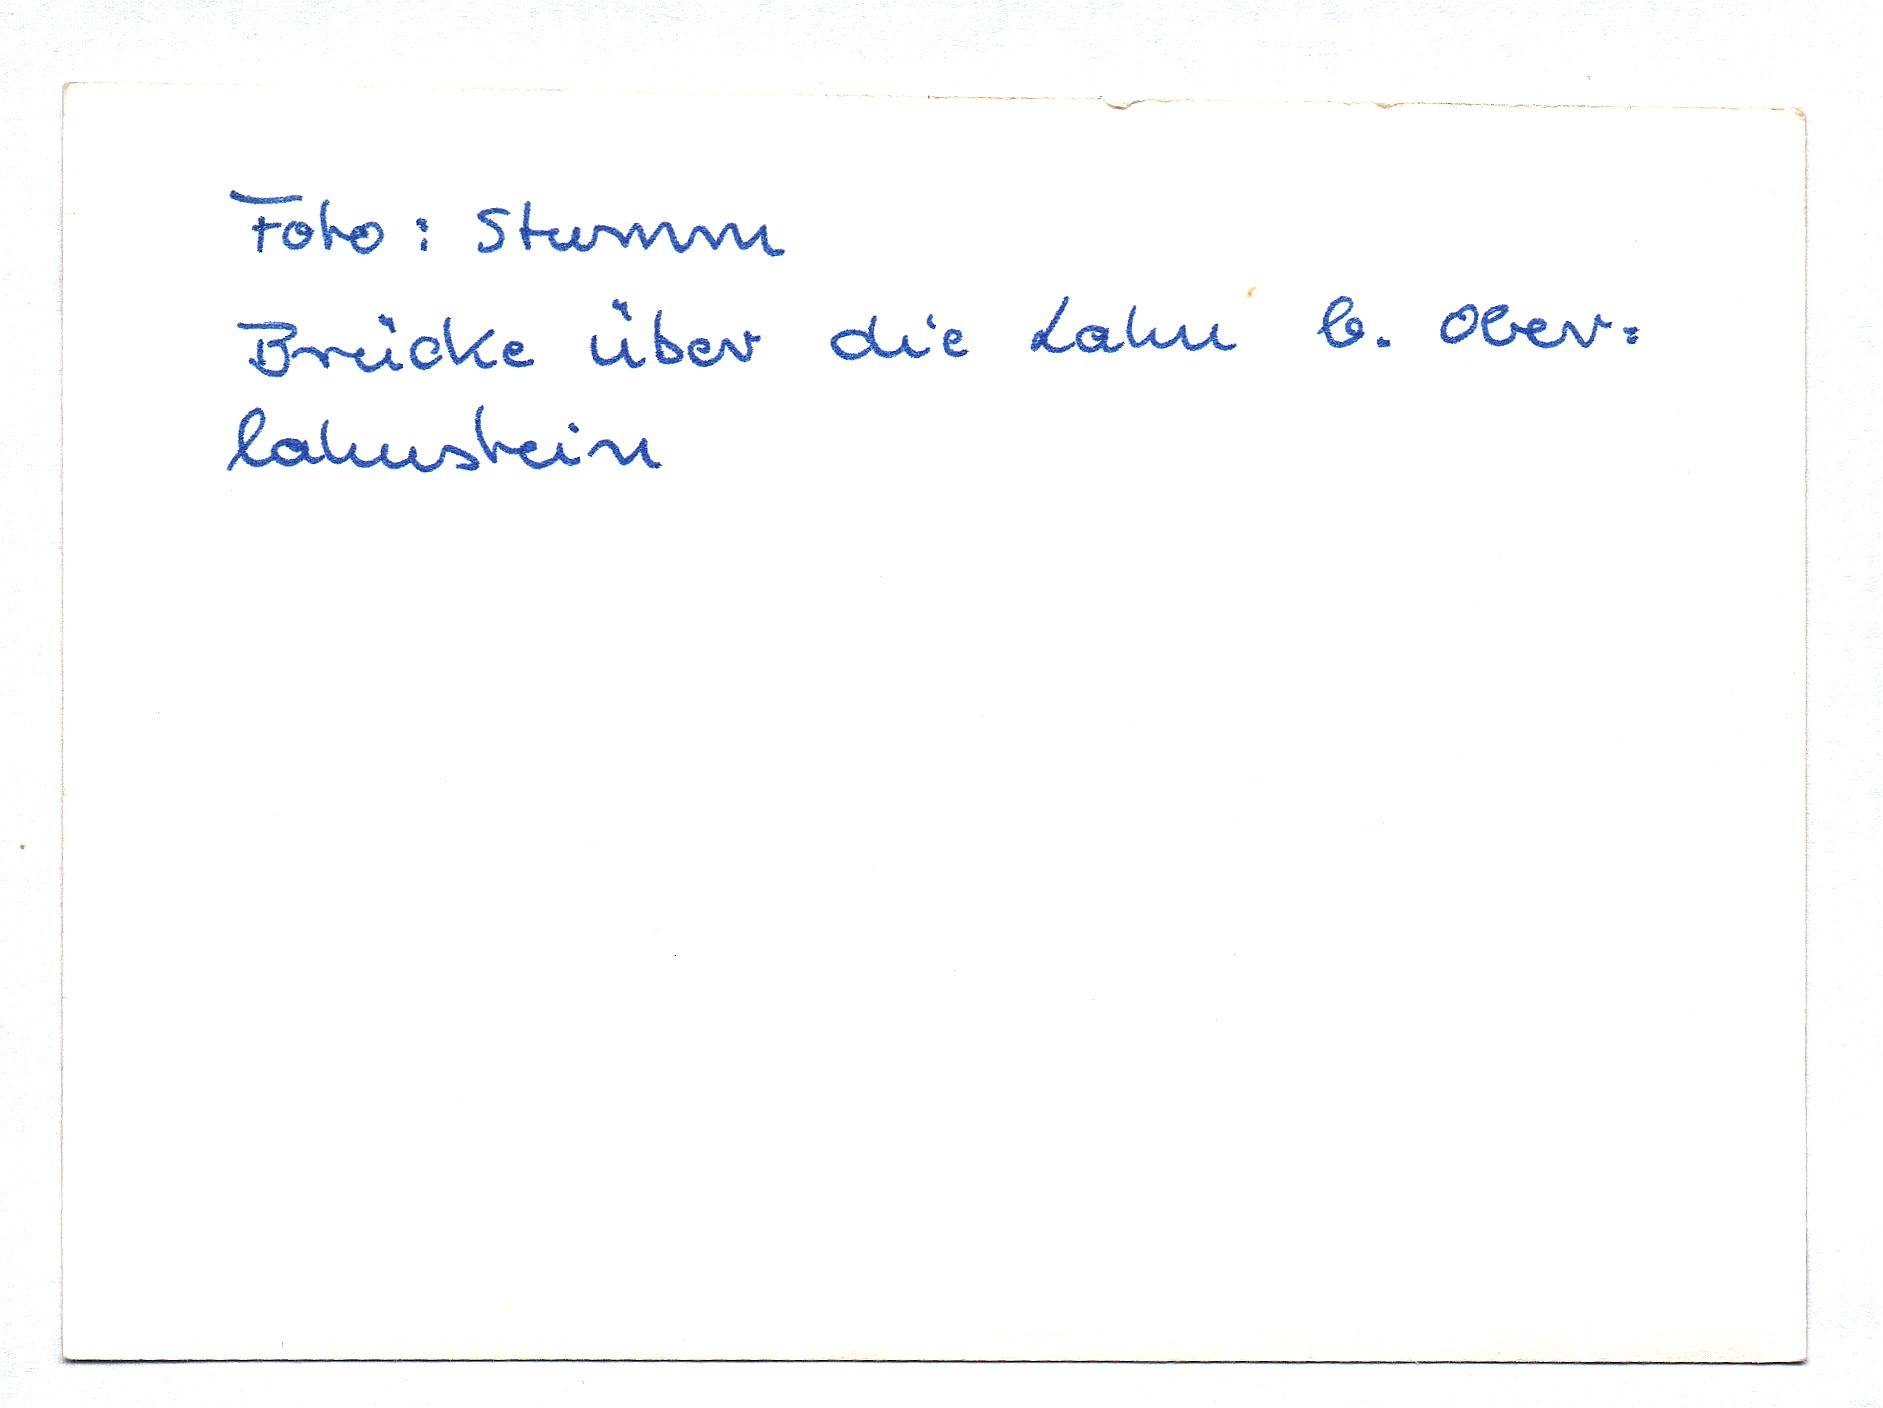 Foto: Stumm
Brücke über die Lahn b. Ober:
lahnstein